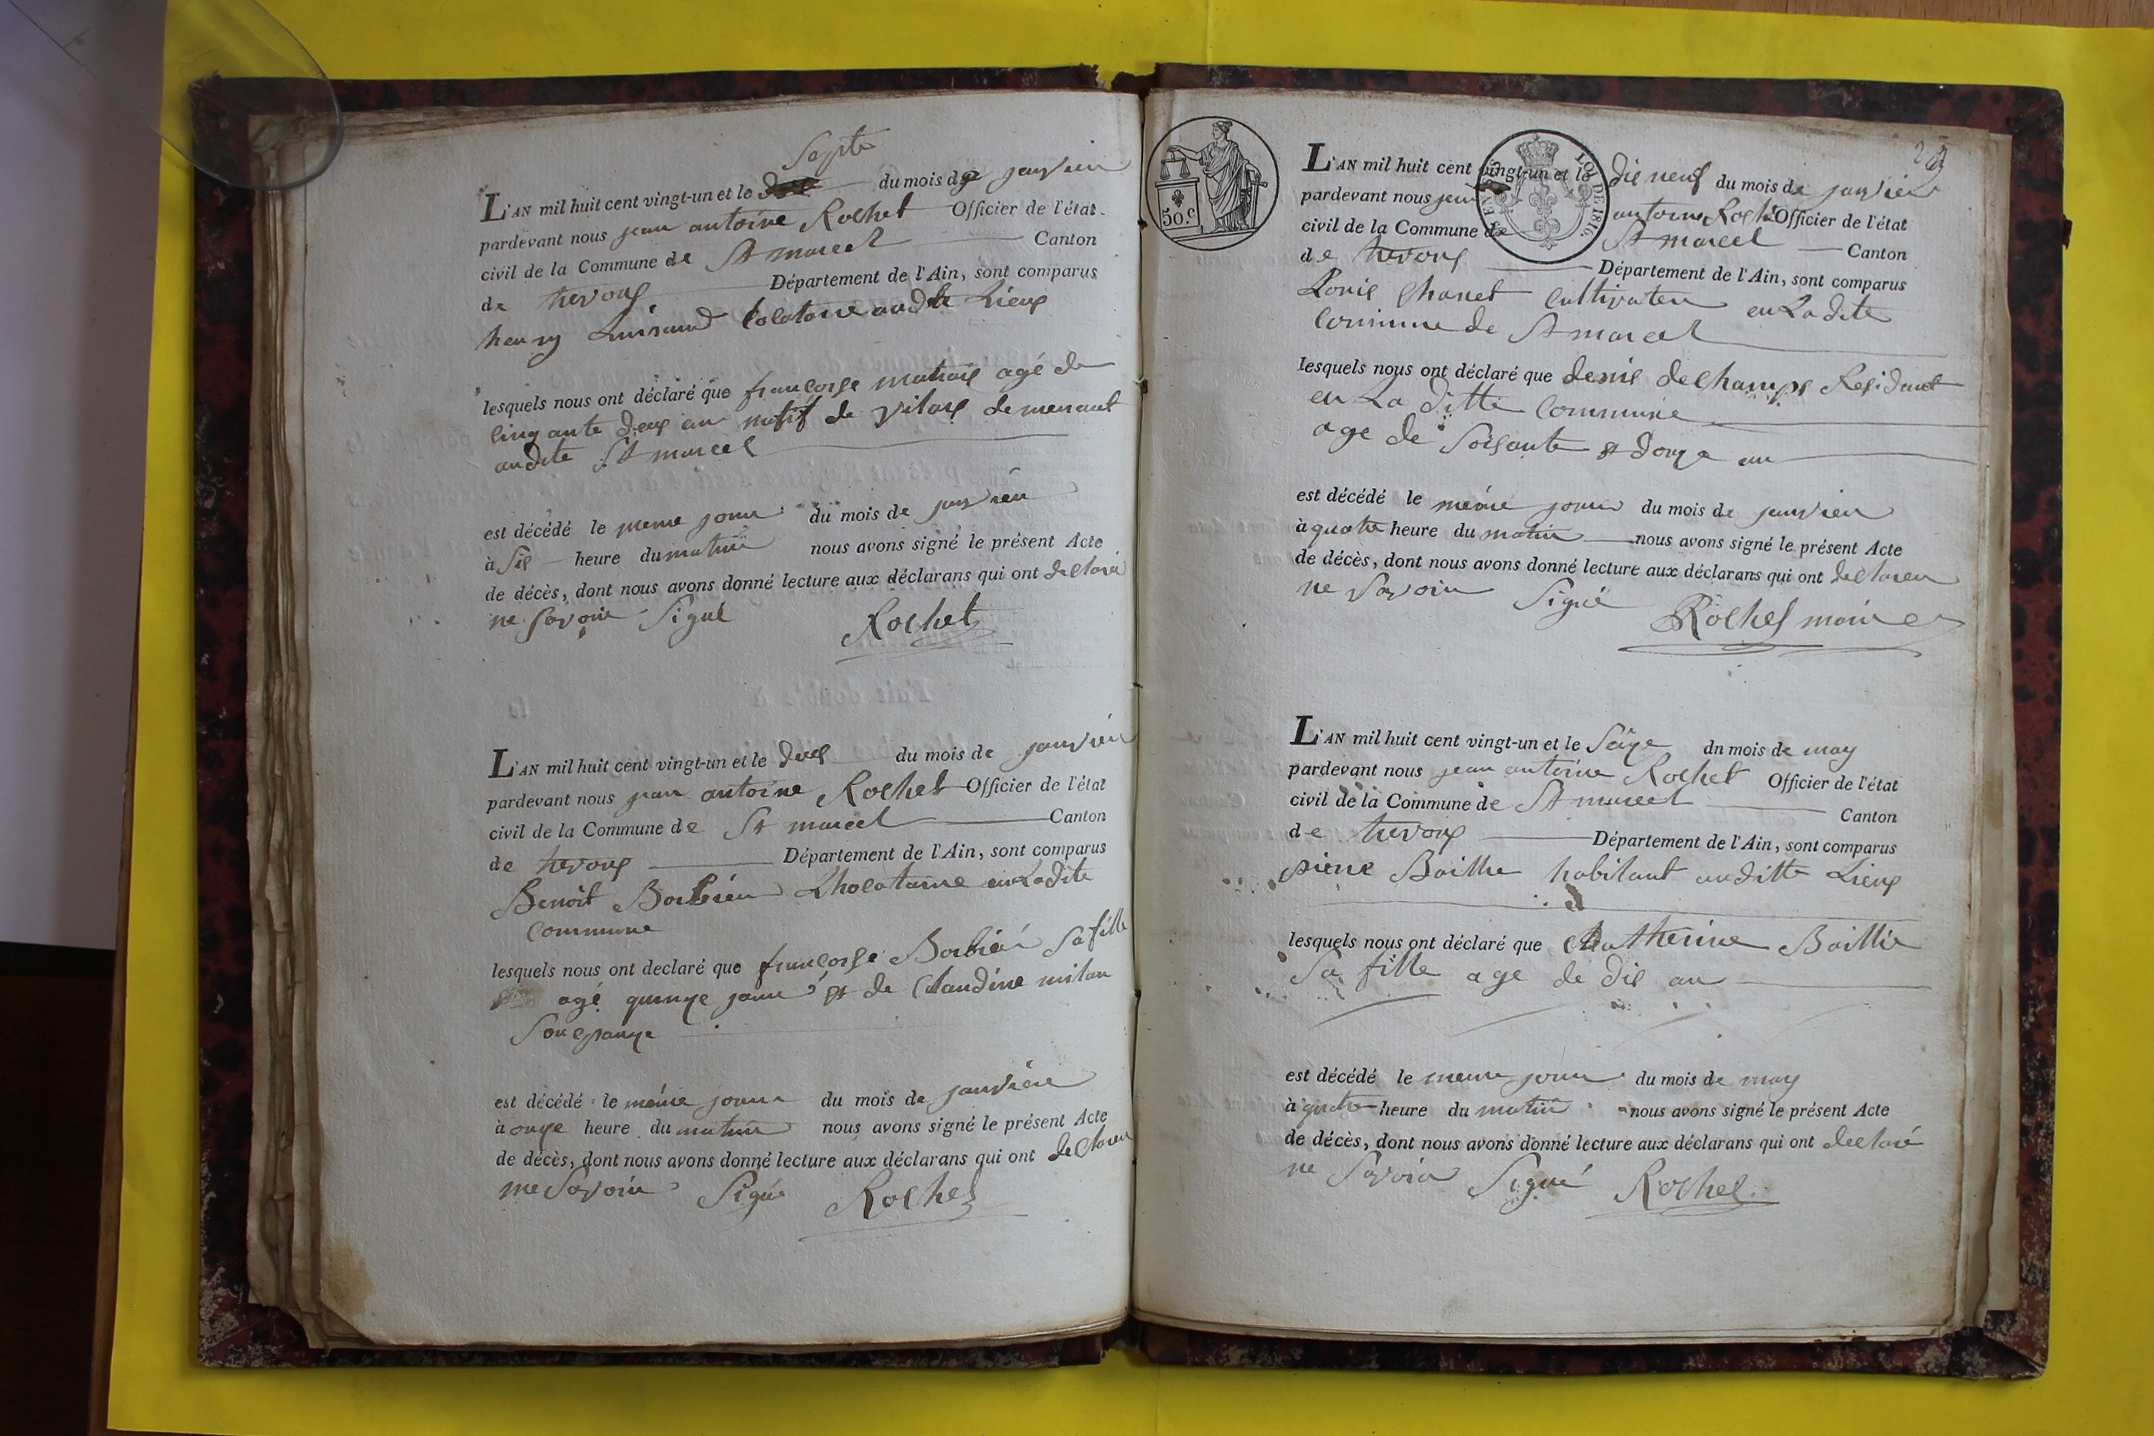 Septe
L'AN mil huit cent vingt-un et le du mois de janvier
pardevant nous jean antoine Rochet Officier de l'état
civil de la Commune de St marcel Canton
de trevoux Département de l'Ain, sont comparus
henry audite Lieux
lesquels nous ont déclaré que francoise agé de
cinquante deux an natif de vilars demeurant
audite St marcel
est décédé le meme jour du mois de janvier
à Six heure du matin nous avons signé le présent Acte
de décès, dont nous avons donné lecture aux déclarans qui ont declaré
ne savoir Signé Rochet
L'AN mil huit cent vingt-un et le du mois de janvier
pardevant nous jean antoine Rochet Officier de l'état
civil de la Commune de St marcel Canton
de trevoux Département de l'Ain, sont comparus
Benoit Borbier en Ladite
commune
lesquels nous ont declaré que francoise Borbier Sa fille
agé quinze jour et de Claudine milan
Son epouze
est décédé le méme jour du mois de janvier
à onze heure du matin nous avons signé le présent Acte
de décès, dont nous avons donné lecture aux déclarans qui ont declarer
ne Savoir Signé Rochet
50.c
LOI DE 1816.
L'AN mil huit cent vingt-un et le dix neuf du mois de janvier
pardevant nous jean antoine Rochet Officier de l'état
civil de la Commune de St marcel Canton
de trevoux Département de l'Ain, sont comparus
Louis Chanet Cultivateur en Ladite
Commune de St marcel
lesquels nous ont déclaré que denis dechamps Residant
en La ditte Commune
age de Soixante et douze an
est décédé le méme jour du mois de janvier
à quatre heure du matin nous avons signé le présent Acte
de décès, dont nous avons donné lecture aux déclarans qui ont declarer
ne Savoir Signé Rochet maire
L'AN mil huit cent vingt-un et le Seize dn mois de may
pardevant nous jean antoine Rochet Officier de l'état
civil de la Commune de St marcel Canton
de trevoux Département de l'Ain, sont comparus
piere habitant auditte Lieux
lesquels nous ont déclaré que Chatherine
Sa fille age de dix an
est décédé le meme jour du mois de may
à quatre heure du matin nous avons signé le présent Acte
de décès, dont nous avons donné lecture aux déclarans qui ont declaré
ne Savoir Signé Rochet